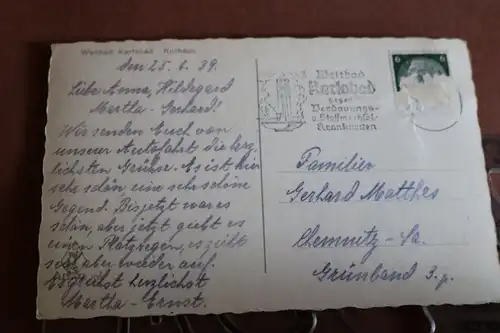 Weltbad Karlsbad Kurhaus
den 25. 6. 39.
Liebe Anna, Hildegard
Martha - Gerhard!
Wir senden Euch von
unserer Autofahrt die herz-
lichsten Grüße. Es ist hier
sehr schön eine sehr schöne
Gegend. Bis jetzt war es
schön, aber jetzt giebt es
einen Platzregen, es
aber wieder auf.
Es grüßt herzlichst
Martha - Ernst.
Weltbad
Karlsbad
gegen
Verdauungs-
u. Stoffwechsel-
Krankheiten
6 6
Familien
Gerhard Matthes
Chemnitz - Sa.
Grünband 3.